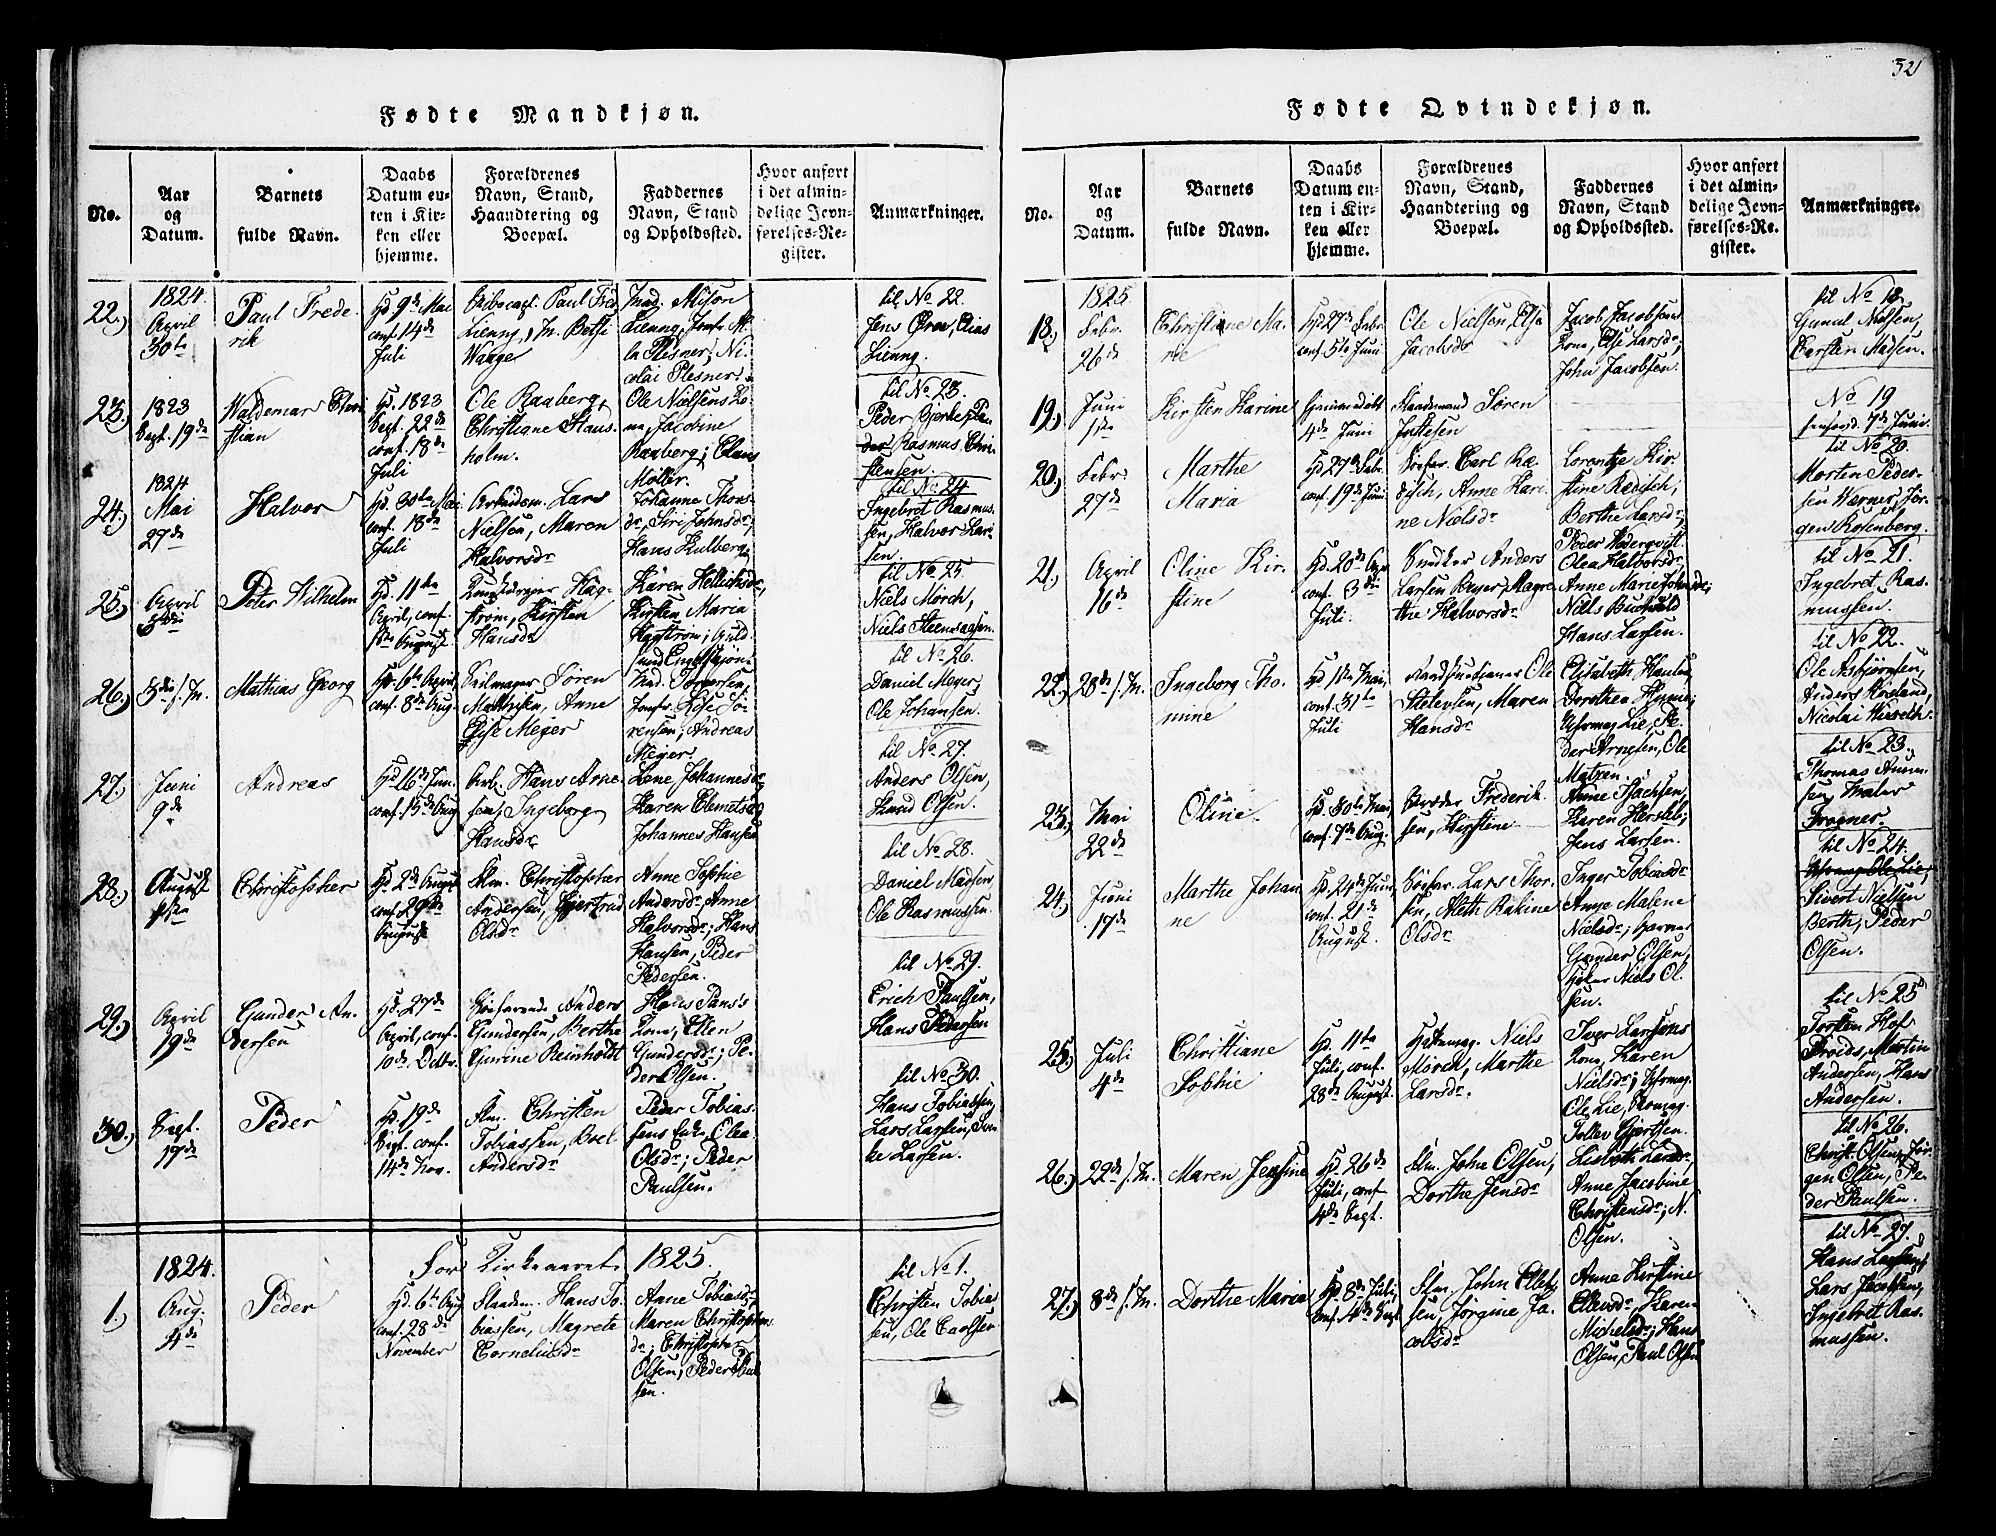 32
Fødte Mandkjøn.
No.
Aar
og
Datum.
Barnets
fulde Navn.
Daabs
Datum en-
ten i Kir-
ken eller
hjemme.
Forældrenes
Navn, Stand,
Haandtering og
Boepæl.
Faddernes
Navn, Stand
og Opholdssted.
Hvor anført
i det almin-
delige Jevn-
førelses-Re-
gister.
Anmærkninger.
22.)
1824.
April
30te
Paul Frede-
rik
Hd 9de Mai
conf. 14de
Juli
Paul Fred.
Lienng, M. Bethi
Waage
Mad. Alison
Lienng, Jomfr. A.
la Plesner, Ni-
colai Plesner.
til No 22.
Jens Ørn, Elias
Lienng.
23.)
1823
Sept. 19de
Waldemar Chri-
stian
Hd. 1823
Sept. 22de
conf. 18de
Juli
Ole Raaberg,
Christiane Haus-
holm.
Ole Nielsens Ko-
na, Jacobine
Raaberg; Claus
Møller.
til No 23.
Peder Gjerke, Pe-
der Rasmus Chri-
stensen.
24.)
1824
Mai
27de
Halvor
Hd. 30te Mai
conf. 18de
Juli
Arbeidsm. Lars
Nielsen, Maren
Halvorsdr
Johanne Thors-
dr, Siri Johnsdr,
Hans Kulberg.
til No 24.
Ingebret Rasmus-
sen, Halvor Lar-
sen.
25.)
April
3die
Peter Wilhelm
Hd. 11te
April, conf.
1ste August
Hag-
strøm, Kirsten
Hansdr
Karen Hellichsdr,
Kirsten Maria
Hagstrøm; Guld-
smed Engelskjøn.
til No 25.
Niels Mørch,
Niels Steensaasen.
26.)
3die s. M.
Mathias Georg
Hd. 6te April
conf. 8de Aug.
Seilmager Søren
Mathisen, Anne
Elise Meyer
Mad. Torgersen
Jomfr. Lise Sø-
rensen; Andreas
Meyer.
til No 26.
Daniel Meyer,
Ole Johansen.
27.)
Juni
9de
Andreas
Hd 16de Juni
conf. 15de Aug
Arb. Hans Arne-
sen, Ingeborg
Hansdr
Lene Johannesdr
Karen Clemetsdr
Johannes Hansen
til No 27.
Anders Olsen,
Knud Olsen.
28.)
August
1ste
Christopher
Hd. 2de August
conf. 29de
August
Slm. Christopher
Andersen, Gjertrud
Olsdr
Anne Sophie
Andersdr, Anne
Halvorsdr; Hans
Hansen, Peder
Pedersen.
til No 28.
Daniel Madsen
Ole Rasmussen.
29.)
April
19de
Gunder An-
dersen
Hd. 27de
April, conf.
10de Octbr.
Søefarende Anders
Gundersen, Berthe
Gurine Reinholdt
Hans Pans's
Kona, Ellen
Gundersdr; Pe-
der Olsen.
til No 29.
Erich Paulsen,
Hans Pedersen
30.)
Sept.
17de
Peder
Hd. 19de
Sept. conf.
14de Nov.
Slm. Christen
Tobiassen, Boel
Andersdr
Peder Tobias-
sens Enke, Olea
Olsdr; Peder
Paulsen.
til No 30.
Hans Tobiassen,
Lars Larsen, Iver
Larsen.
For Kirkeaaret 1825.
1.)
1824.
Aug.
4de
Peder
Hd. 6te Aug
conf. 28de
November
Slaadem. Hans To-
biassen, Magrete
Corneliusdr
Anne Tobiasdr,
Maren Christophers-
dr; Christopher
Olsen, Peder Paul-
sen.
til No 1.
Christen Tobias-
sen, Ole Carlsen
Fødte Qvindekjøn.
No.
Aar
og
Datum.
Barnets
fulde Navn.
Daabs
Datum en-
ten i Kir-
ken eller
hjemme.
Forældrenes
Navn, Stand,
Haandtering og
Boepæl.
Faddernes
Navn, Stand
og Opholdssted.
Hvor anført
i det almin-
delige Jevn-
førelses-Re-
gister.
Anmærkninger.
18.)
1825.
Febr.
26de
Christiane Ma-
rie
Hd 27de Febr.
conf. 5te Juni
Ole Nielsen, Else
Jacobsdr
Jacob Jacobsens
Kone, Else Larsdr;
John Jacobsen.
til No 18.
Gunul Nielsen,
Carsten Madsen.
19.)
Juni
1ste
Kirsten Karine
Hjemmedøbt
4de Juni
Slaademand Søren
Jottesen
No 19
7de Juni
20.)
Febr.
27de
Marthe
Maria
Hd 27de Febr.
conf. 19de Juni
Søefar. Carl Ræ-
disch, Anne Kari-
ne Nielsdr
Lorentze Kir-
stine Redisch;
Berthe Larsdr;
Peder Wederqvist
til No 20.
Morten Peder-
sen Werner, Jør-
gen Rosenberg.
21.)
April
16de
Oline Kir-
stine
Hd. 20de Apr
conf. 3die
Juli.
Snedker Anders
Larsen Beyer, Magre-
the Halvorsdr
Olea Halvorsdr,
Anne Marie Johnsdr;
Niels Buchold
Hans Larsen.
til No 21.
Ingebret Ras-
mussen.
22.)
28de s. M.
Ingeborg Tho-
mine
Hd 1ste Mai,
conf. 31te
Juli
Ole
Stelevsen, Maren
Hansdr
Elisabeth Hansen
Dorothea Hanne;
Uhrmag. Lie, Pe-
der Arnesen, Ole
Matzen.
til No 22.
Ole Asbjørnsen,
Anders Rosland,
Nicolai Wirsch.
23.)
Mai
22de
Oline
Hd. 30te Mai,
conf. 7de Aug.
Skræder Frederik-
sen, Kirstine
Anne Isachsen,
Karen Herslebs;
Jens Larsen.
til No 23.
Thomas Amm-
sen, Maler
Frogner.
24.)
Juni
17de
Marthe Johan-
ne
Hd. 24de Juni,
conf. 21de
August.
Søefar. Lars Thor-
sen, Aleth Rakine
Olsdr
Inger Tobiasdr
Anne Malene
Nielsdr; Garver
Gunder Olsen,
Niels Ol-
sen.
til No 24.
Uhrmag. Ole Lie,
Sivert Nielsen
Berth, Peder
Olsen.
25.)
Juli
4de
Christiane
Sophie
Hd. 11te
Juli, conf.
28de August.
Hattemag. Niels
Mørch, Marthe
Larsdr.
Iver Larsens
Kone, Karen
Nielsdr; Uhrmag.
Ole Lie, Skomag.
Tollev Gjertsen.
til No 25
Torsten Hof
Proids, Martin
Andersen, Hans
Andersen.
26.)
22de s. M.
Maren Jensine
Hd. 26de
Juli, conf.
4de Sept.
Slm. John Olsen,
Dorthe Jensdr
Lisbeth Larsdr,
Anne Jacobine
Christensdr; N.
Olsen.
til No 26.
Christ. Olsen, Jør-
gen Olsen, Pe-
der Paulsen.
27.)
8de s. M.
Dorthe Maria
Hd. 8de Juli,
conf. 4de Sept
Slm. John Ellef-
sen, Jørgine Ja-
cobsdr
Anne Kirstine
Ellevsdr, Karen
Michelsdr; Hans
Olsen, Paul Olsen
til No 27.
Hans Larsen,
Lars Jacobsen,
Ingebret Ras-
mussen.